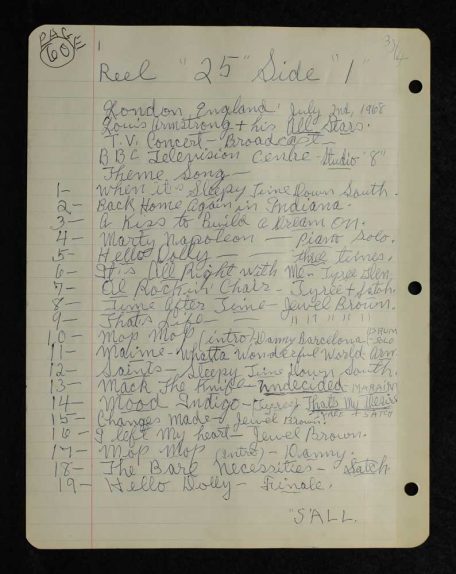 PAGE
60
Reel "25" Side "1"
London England July 2nd, 1968
Louis Armstrong + his All Stars.
T.V. Concert - Broadcast -
BBC Television Centre - Studio "8"
Theme Song -
1- When it's Sleepy Time Down South.
2- Back Home Again in Indiana.
3- A Kiss to Build a Dream On.
4- Marty Napoleon - Piano Solo.
5- Hello Dolly - three times.
6- It's All Right with Me - Tyree Glen.
7- Ol Rockin' Chair - Tyree + Satch.
8- Time After Time - Jewel Brown.
9- That's Life - " " " " "
10- Mop Mop (intro) Danny Barcelona - DRUM SOLO
11- Mame - Whatta Wonderful World Arm
12- Saints - Sleepy Time Down South.
13- Mack The Knife - Undecided -
14- Mood Indigo - (Tyree) That's My Desire
TYREE + SATCH
15- Changes Made - Jewel Brown.
16- I left My heart - Jewel Brown.
17- Mop Mop (intro) - Danny.
18- The Bare Necessities - Satch
19- Hello Dolly - Finale.
"S'ALL.